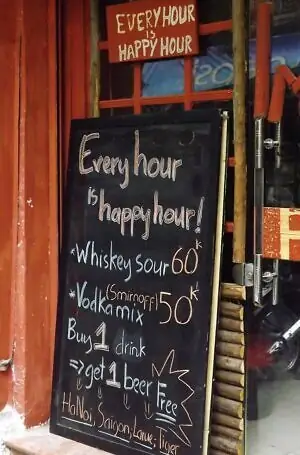 EVERY HOUR
IS
HAPPY HOUR
Every hour
is happy hour!
*Whiskey sour 60k
*Vodka mix (Smirnoff) 50k
Buy 1 drink
=> get 1 beer Free
HaNoi, Saigon, Larue, Tiger